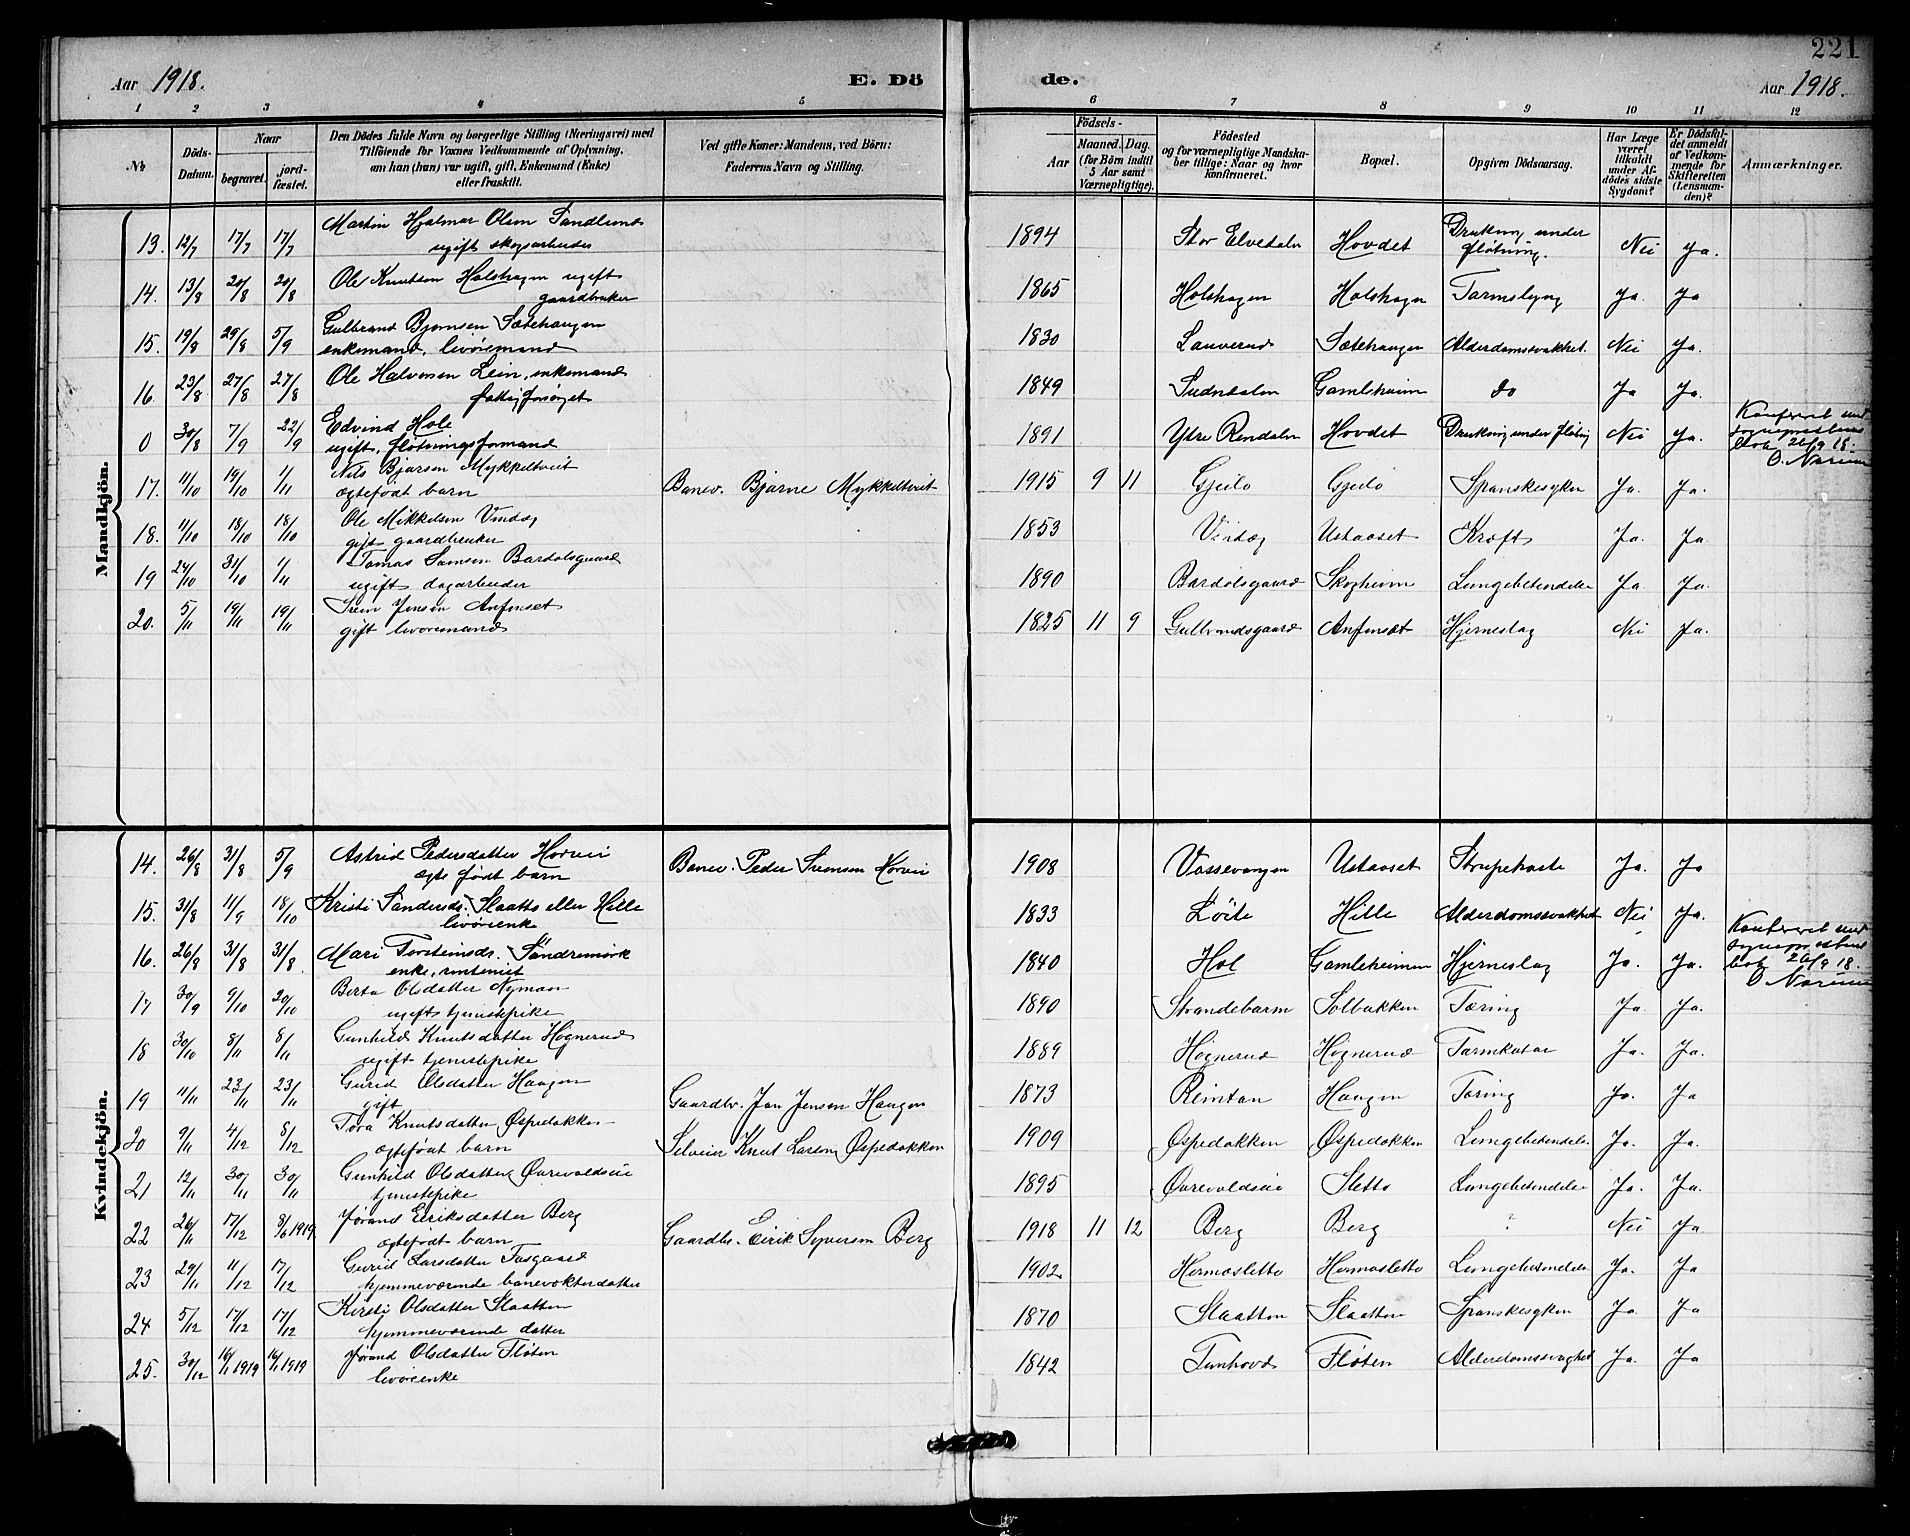 221
Aar 1918. E. Dö de. Aar 1918.
1 2 3 4 5 6 7 8 9 10 11 12
№ Döds-Datum. Naar begravet. jord-fæstet. Den Dödes fulde Navn og borgerlige Stilling (Næringsvei) med Tilföiende for Voxnes Vedkommende af Oplysning. om han (hun) var ugift, gift, Enkemand (Enke) eller fraskilt. Ved gifte Koner: Mandens, ved Börn: Faderens Navn og Stilling. Födsels- Aar Maaned. Dag. (for Börn indtil 5 Aar samt Værnepligtige). Födested og for værnepligtige Mandska-ber tillige: Naar og hvor konfirmeret. Bopæl. Opgiven Dödsaarsag. Har Læge været tilkaldt under Af-dödes sidste Sygdom? Er Dödsfal-det anmeldt af Vedkom-mende for Skifteretten (Lensman-den)? Anmærkninger.
Mandkjön.
13. 12/7 17/7 17/7 Martin Hjalmar Olsen Sandlund ugift skogsarbeider 1894 Stor Elvedalen Hovdet Drukning under fløtning. Nei Ja.
14. 13/8 20/8 20/8 Ole Knutsen Holshagen ugift gaardbruker 1865 Holshagen Holshagen Tarmslyng Ja. Ja
15. 19/8 29/8 5/9 Gulbrand Bjørnsen Sætehaugen enkemand, livøiremand 1830 Lauverud Sætehaugen Alderdomssvakhet. Nei Ja.
16. 23/8 27/8 27/8 Ole Halvorsen Lein, enkemand fattigforsørget 1849 Sudndalen Gamleheim do Ja Ja.
0 30/8 7/9 22/9 Edvind Hole ugift, fløtningsformand 1891 Ytre Rendalen Hovdet Drukning under fløtng Nei Ja. Konfereret med sogneprestens bok 26/9 18. O. Norum
17. 11/10 19/10 1/11 Nils Bjarsen Mykkeltveit ægtefødt barn Banev. Bjarne Mykkeltveit 1915 9 11 Gjeilo Gjeilo Spanskesyken Ja. Ja.
18. 11/10 18/10 18/10 Ole Mikkelsen Vindeg gift gaardbruker 1853 Vindeg Ustaoset Kræft Ja. Ja.
19 24/10 31/10 1/11 Tomas Samsen Bardølsgaard ugift dagarbeider 1890 Bardølsgaard Skogheim Lungebetendelse Ja. Ja.
20. 5/11 19/11 19/11 Svein Jensen Anfinset gift livøremand 1825 11 9 Gulbrandsgaard Anfinset Hjerneslag Nei Ja.
Kvindekjön.
14. 26/8 31/8 5/9 Astrid Pedersdatter Horvei ægte født barn Banev. Peder Svensen Horvei 1908 Vossevangen Ustaoset Strupehoste Ja. Ja
15. 31/8 11/9 18/10 Kristi Sandersd. Slaatto eller Hille livøienke 1833 Løite Hille Alderdomssvakhet Nei Ja.
16. 26/8 31/8 31/8. Mari Torsteinsds. Søndremørk enke, rentenist 1840 Hol Gamleheimen Hjerneslag Ja. Ja. Konfereret med sogneprestens bok 26/9 18. O Norum
17 30/9 9/10 20/10 Berta Olsdatter Nyman ugift tjenestepike 1890 Strandebarm Solbakken Tæring Ja Ja.
18 30/10 8/11 8/11 Gunhild Knutsdatter Høgnerud ugift tjenestepike 1889 Høgnerud Høgnerud Tarmkatar Ja. Ja.
19 11/11 23/11 23/11 Gurid Olsdatter Haugen gift Gaardbr. Jan Jensen Haugen 1873 Reintan Haugen Tæring Ja. Ja
20 9/11 4/12 8/12 Tora Knutsdatter Øspedokken ægtefødt barn Selveier Knut Larsen Øspedokken 1909 Øspedokken Øspedokken Lungebetendelse Ja. Ja.
21 12/11 30/11 30/11 Gunhild Olsdatter Øvrevoldseie tjenestepike 1895 Øvrevoldseie Sletto Lungebetendelse Ja. Ja.
22 26/11 17/12 8/6 1919 Jørand Eiriksdatter Berg ægtefødt barn Gaardbr. Eirik Syversen Berg 1918 11 12 Berg Berg ? Nei Ja
23 29/11 11/12 17/12 Gurid Larsdatter Tufsgaard hjemmeværende banevokterdatter 1902 Hermosletto Hermosletto Lungebetendelse Ja. Ja
24 5/12 17/12 17/12 Kirsti Olsdatter Slaatten hjemmeværende datter 1870 Slaatten Slaatten Spanskesyken Ja. Ja
25. 30/12 16/1 1919 16/1 1919 Jørand Olsdatter Fløten livøreenke 1842 Tunhovd Fløten Alderdomssvaghet Ja. Ja